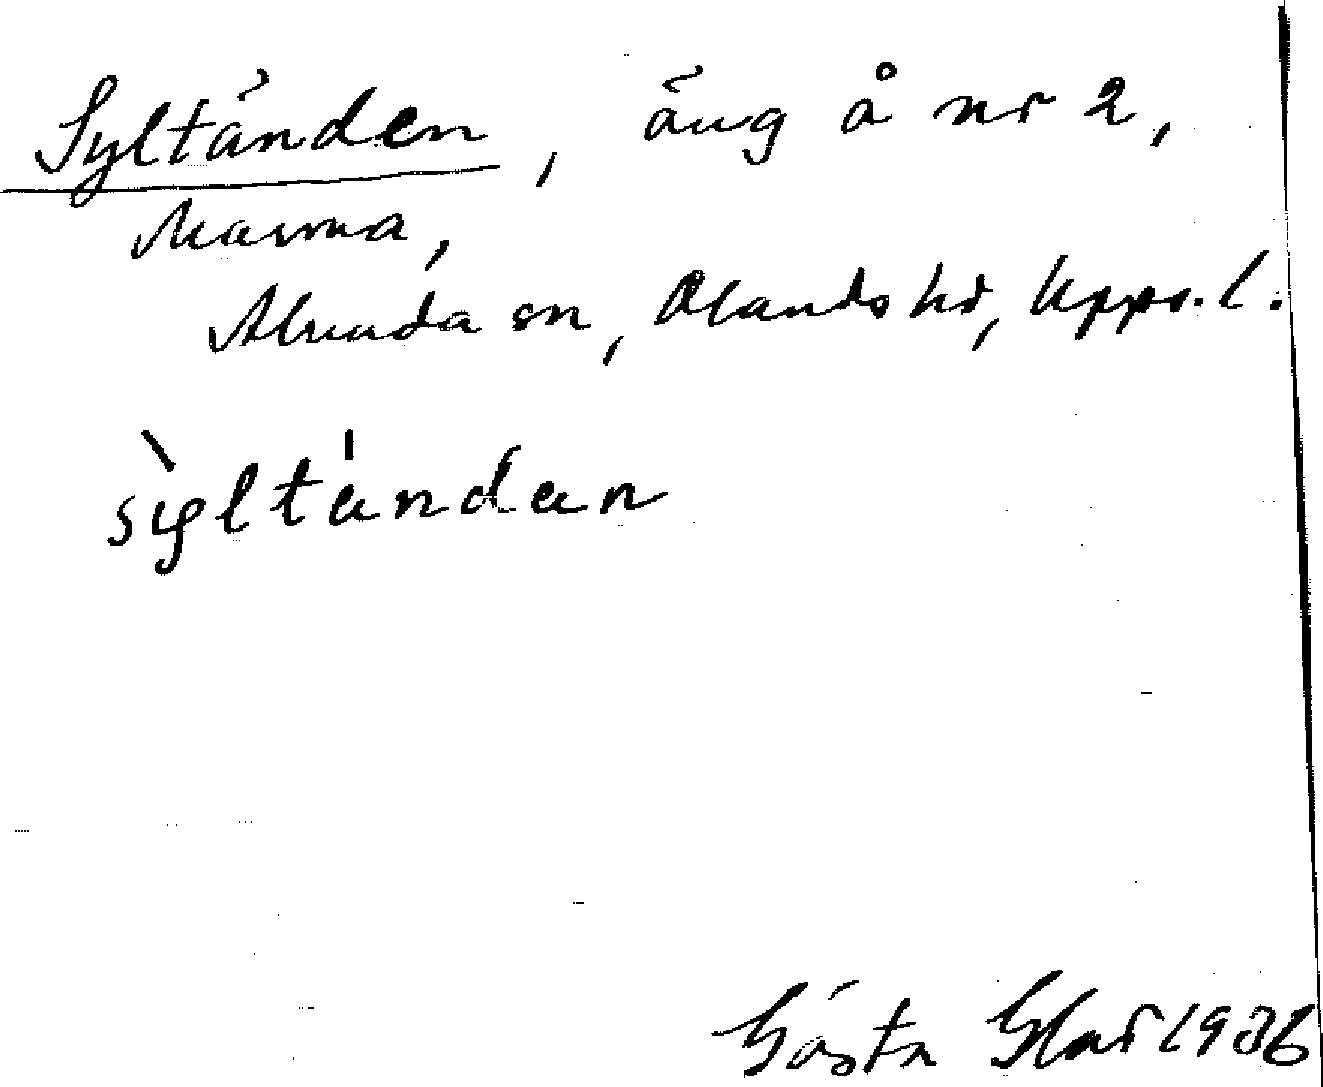 Syltänden, äng å nr 2,
Marma,
Almunda sn, Olands hd, Upps. l.
sỳltándan
Gösta Klar 1936